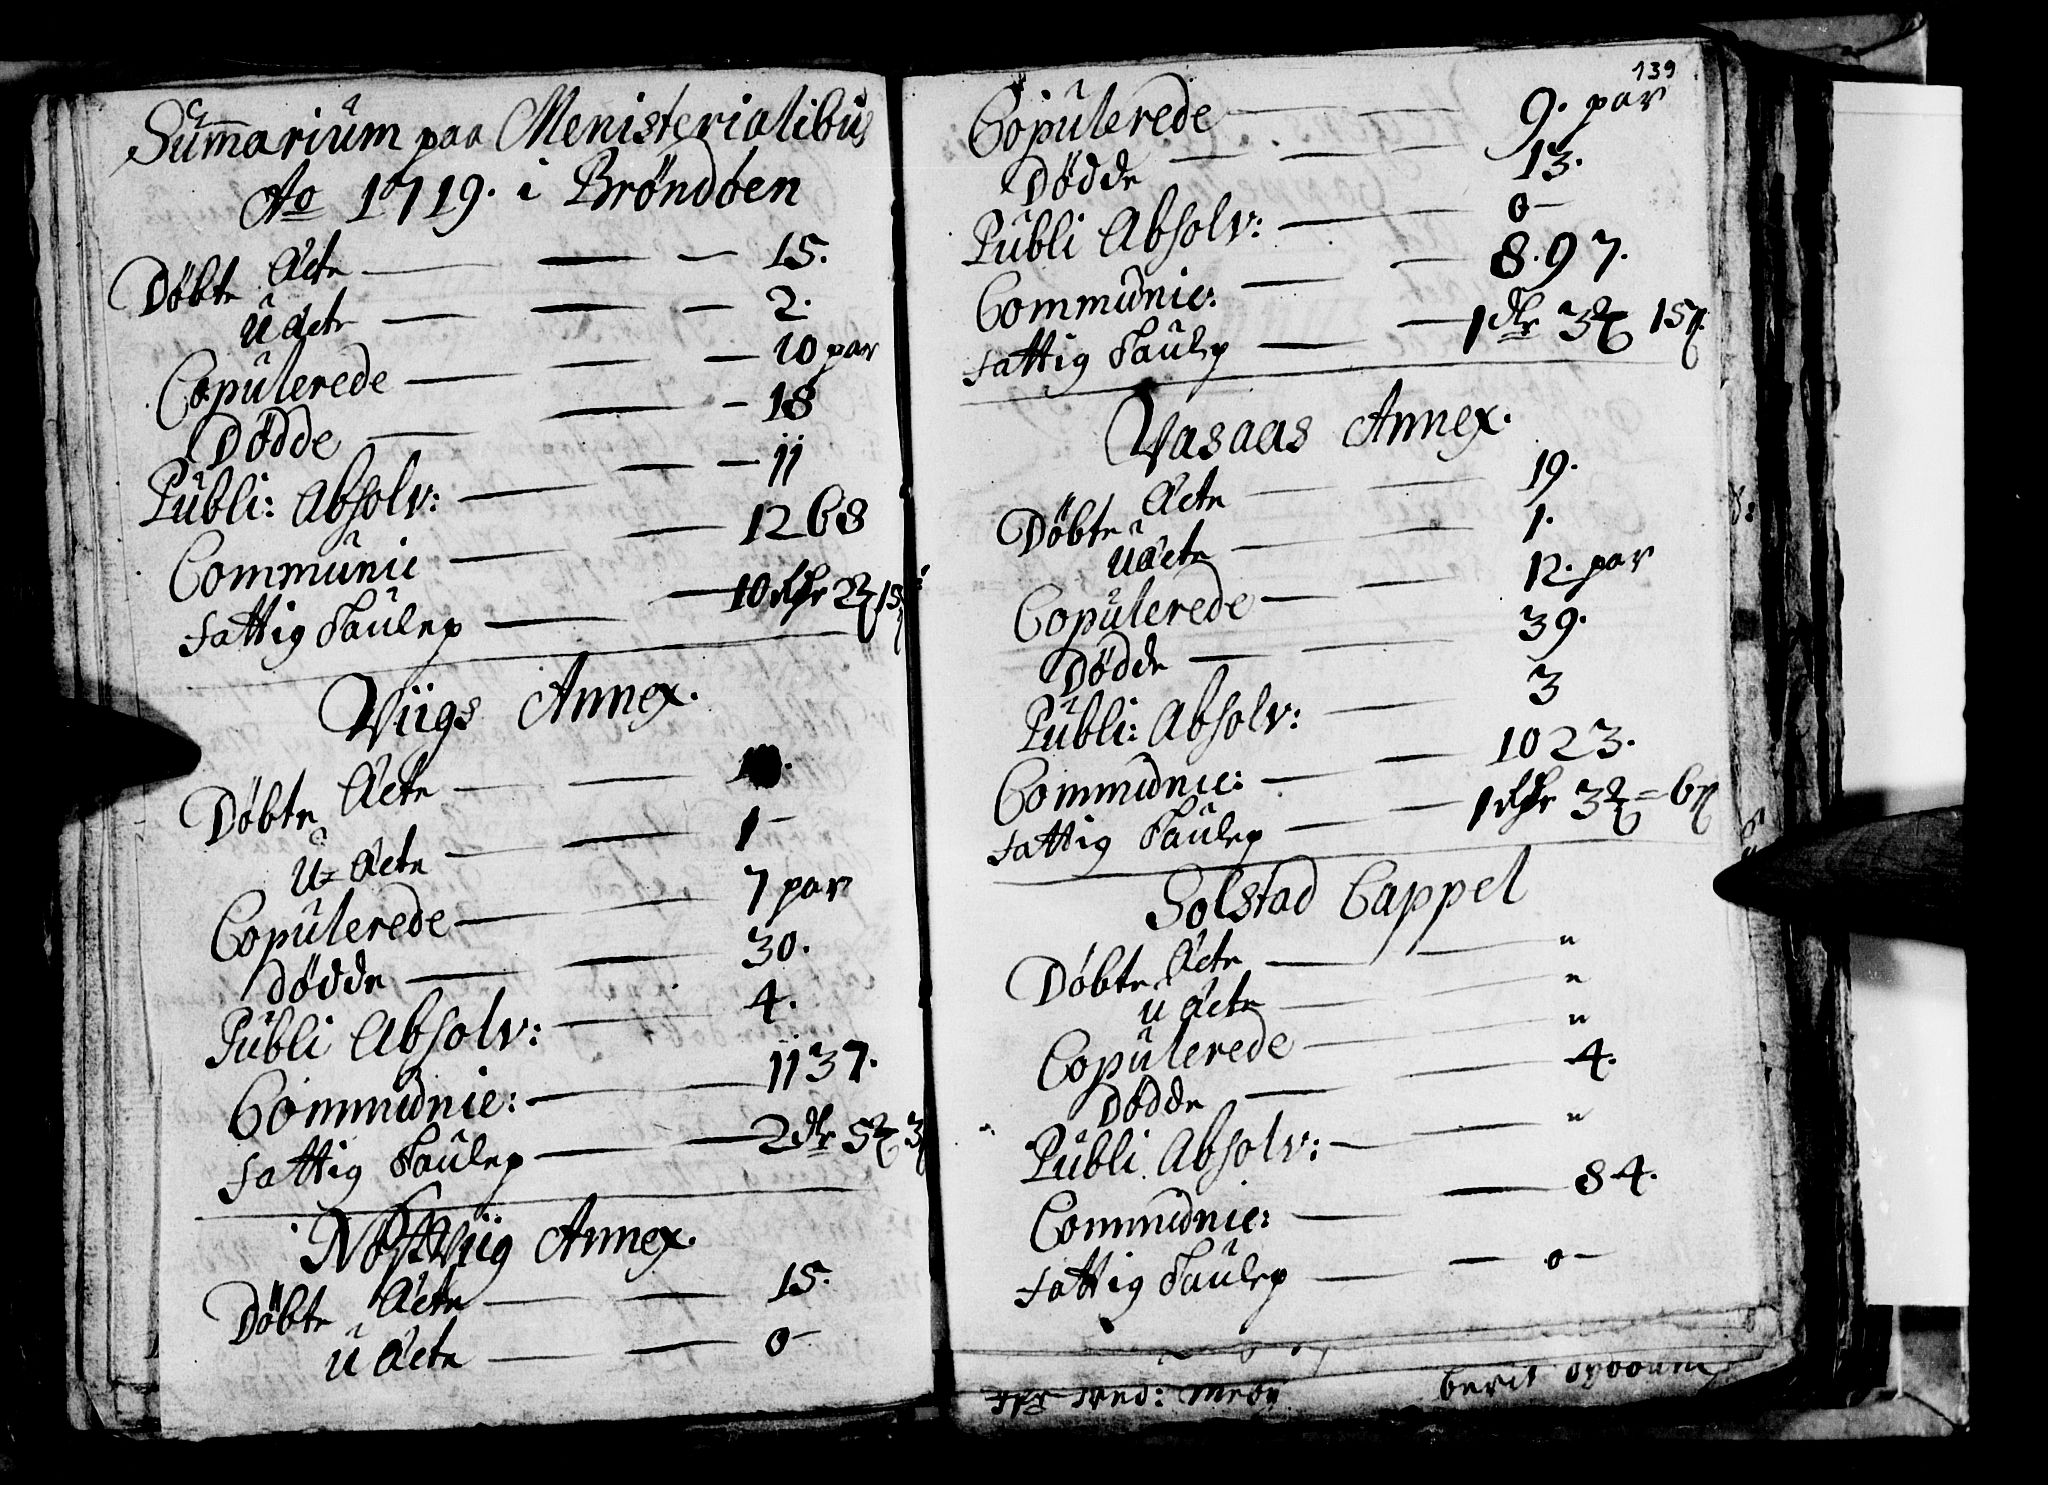 Summarium paa Menisterialibus
Ao 1719. i Brøndøen
Døbte Æcte 15.
u Æcte 2.
Copulerede 10 par
Dødde 18
Publi: Absolv: 11
Communic 1268
fattig Taulep 10 dlr 2 15
Viigs Annex.
Døbte Æcte
U= Æcte 1
Copulerede 7 par
Dødde 30.
Publi Absolv: 4.
Communic: 1137.
fattig Taulep 2 dlr 5 3
Nøstviig Annex.
Døbte Æcte 15.
u Æcte 0
139
Copulerede 9. par
Dødde 13.
Publi Absolv: 0
Communic: 8.97.
fattig Taulep 1 dlr 3 15
Vasaas Annex.
Døbte Æcte 19.
u Æcte 1.
Copulerede 12. par
Dødde 39.
Publi: Absolv: 3
Communic: 1023.
fattig Taulep 1 dlr 3 = 6
Solstad Cappel
Døbte Æcte "
u Æcte "
Copulerede "
Dødde 4.
Publi Absolv: "
Communic: 84.
fattig Taulep 0
berit